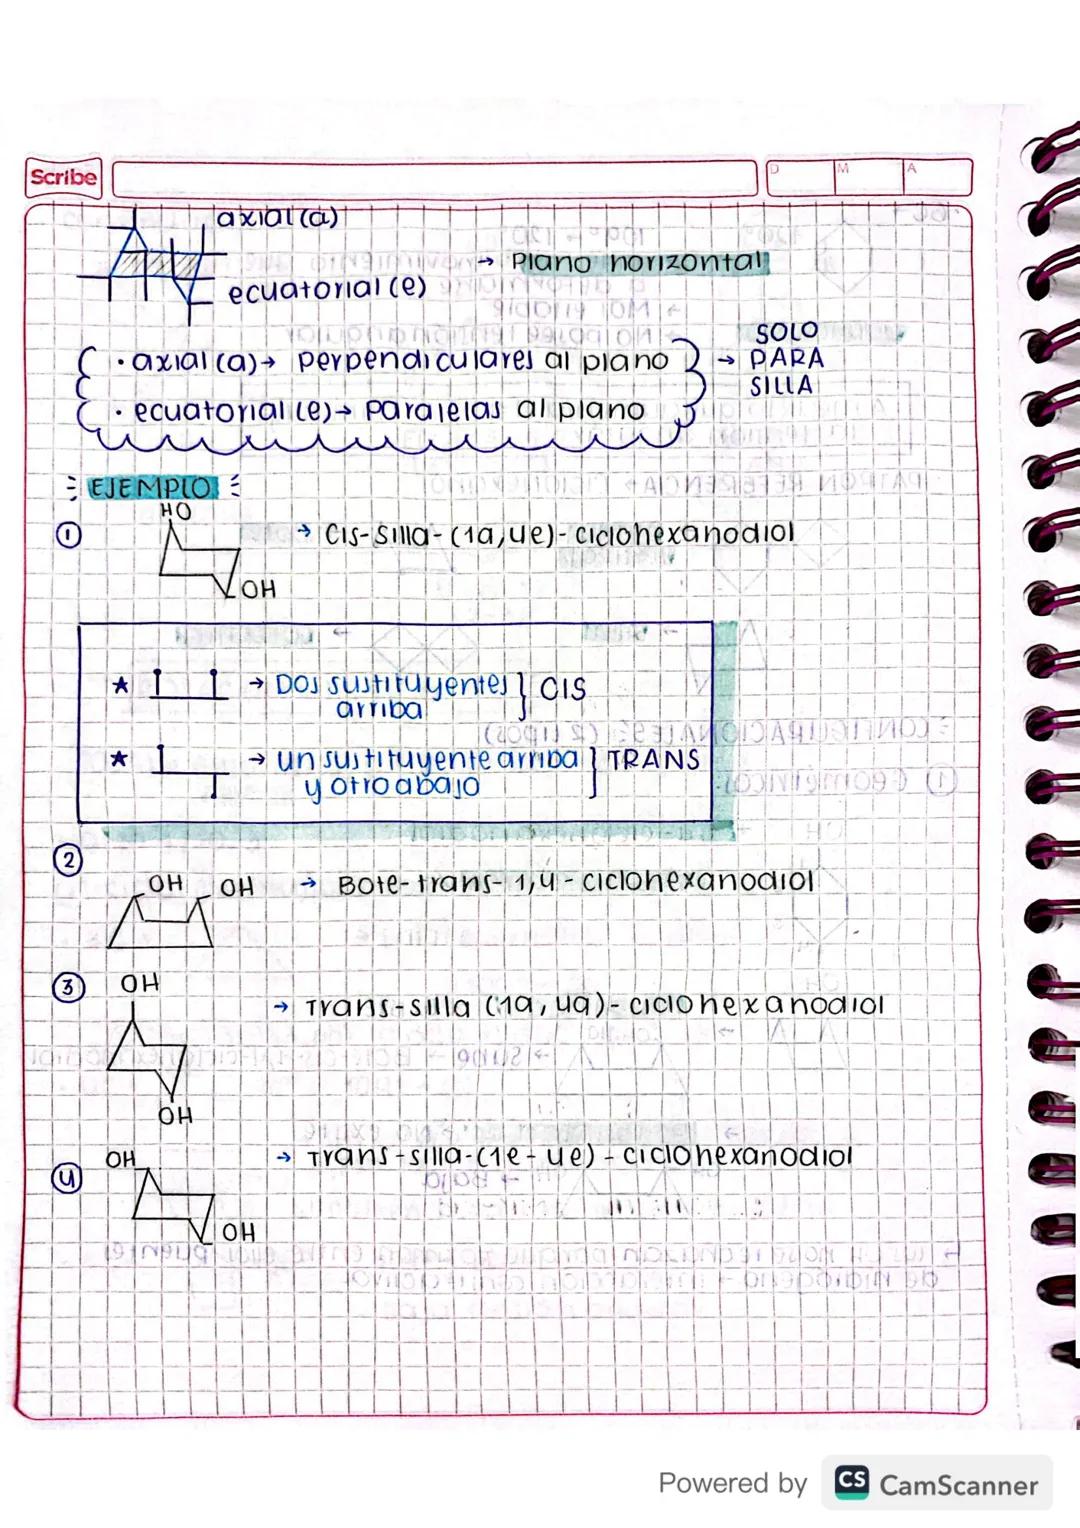 Scribe
D M A
axial (a)
→ Plano horizontal
ecuatorial (e)
· axial (a) → perpendiculares al plano
· ecuatorial (e) → Paralelas al plano
→ SOLO
PARA
SILLA
EJEMPLO
① HO
OH
→ Cis-silla-(1a,4e)-ciclohexanodiol
★ → Dos sustituyentes
arriba } CIS
★ → un sustituyente arriba
y otro abajo } TRANS
②
OH OH → Bote-trans-1,4-ciclohexanodiol
③ OH
OH
→ Trans-silla (1a, 4a)-ciclohexanodiol
④ OH
OH
→ Trans-silla-(1e-4e)-ciclohexanodiol
Powered by CS CamScanner